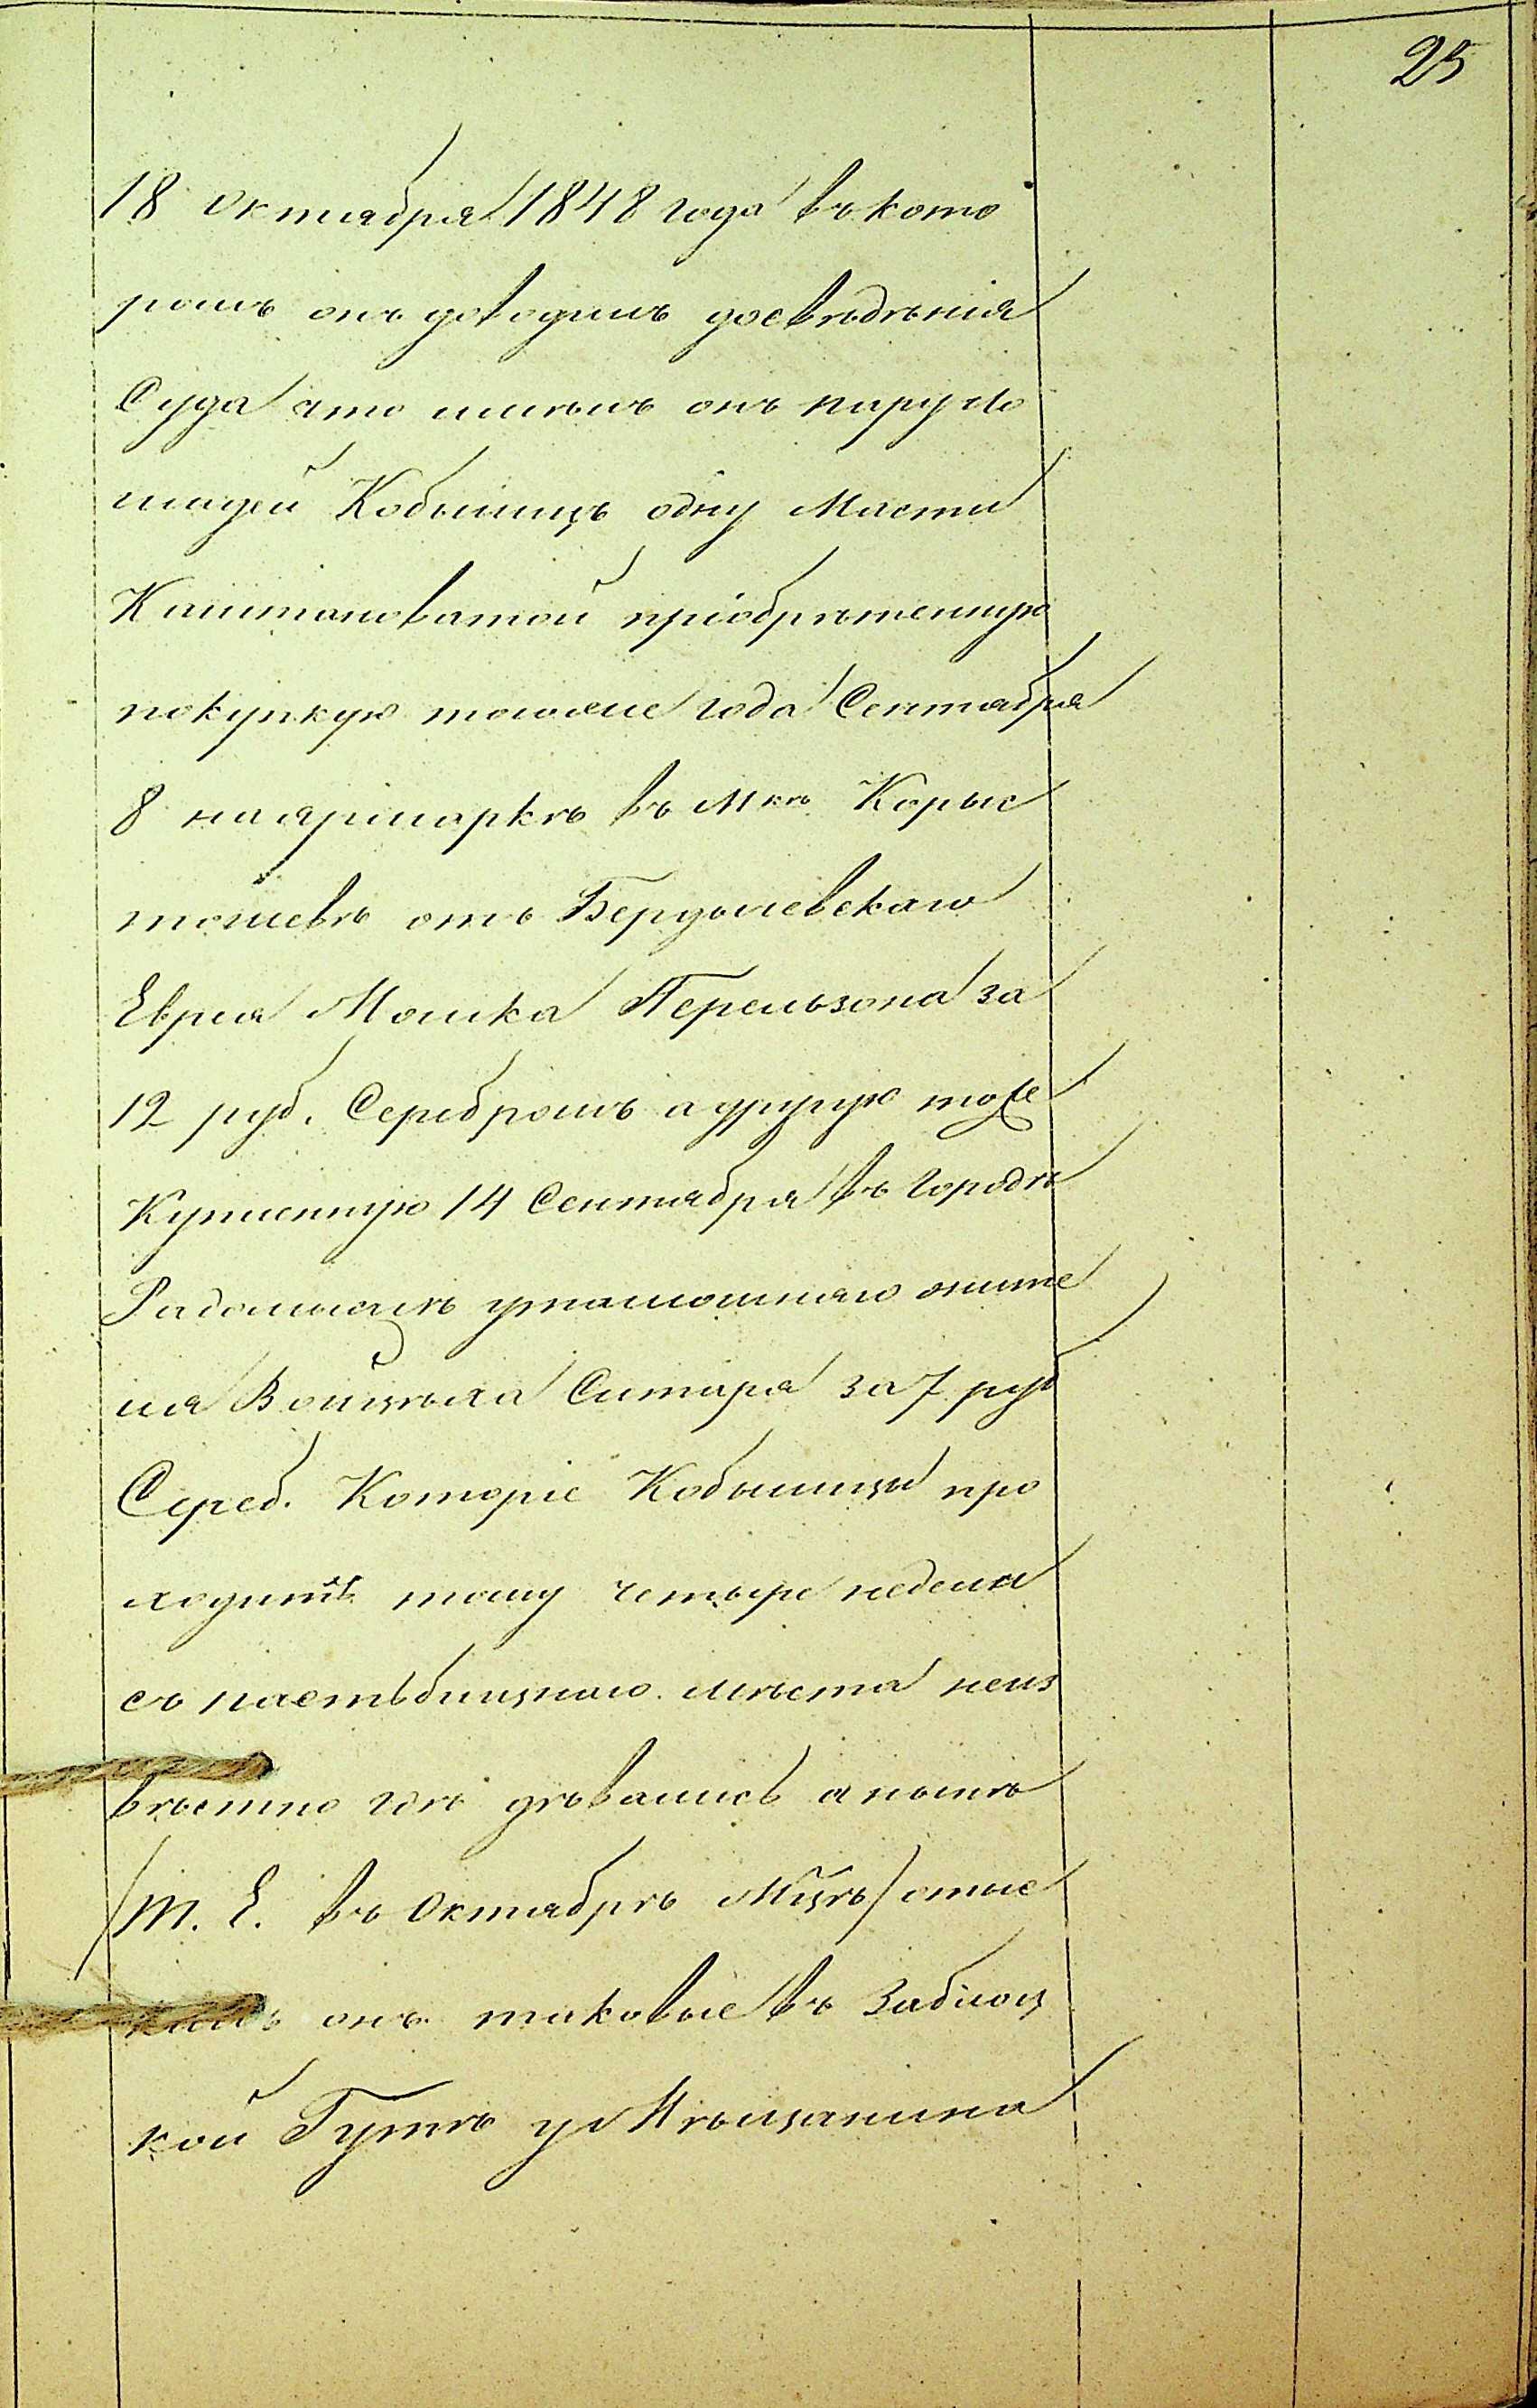 25
18 Октября 1848 года въ кото
ромъ онъ доводитъ досвѣдѣнія
Суда что имѣлъ онъ пару ло
шадей Кобылицъ одну Масти
Каштановатой пріобрѣтенную
покупкую тогоже года Сентября
8 на ярмаркѣ въ Мкѣ Корыс
тошевѣ отъ Бердычевскаго
Еврея Мошка Перельзона за
12 руб. Серебромъ а другую тоже
Купленную 14 Сентября въ Городѣ
Радомыслѣ утамошняго жите
ля Войцѣха Ситара за 7 руб
Сереб. Которіе Кобылицы про
ходитъ тому четыре недели
съ пастьбищнаго мѣста неиз
вѣстно гдѣ дѣвались а нынѣ
/т. Е. въ Октябрѣ Мцѣ/ отыс
калъ онъ таковые въ Забілоц
кой Гутѣ у Мѣщанина